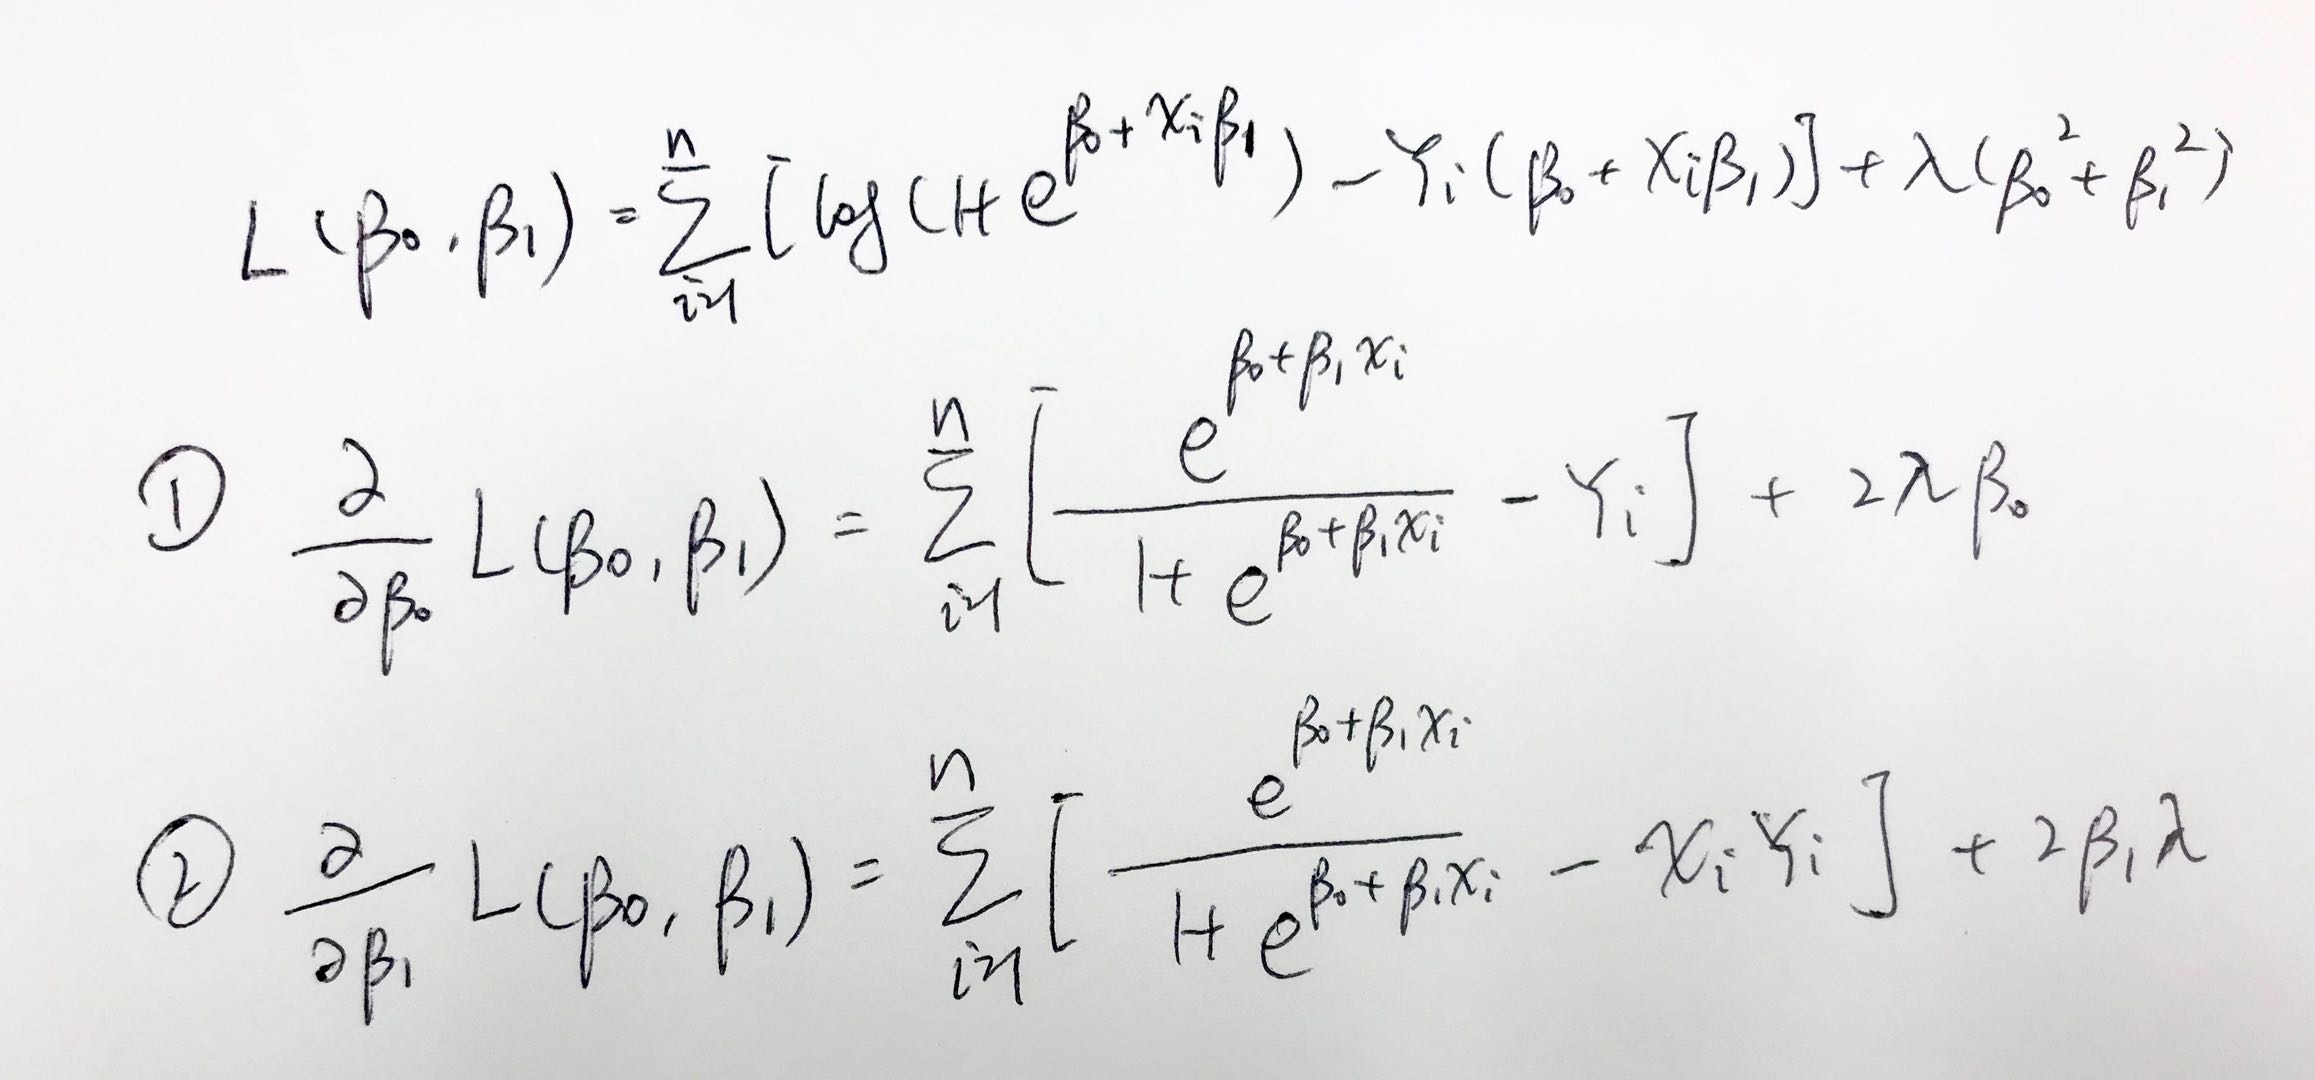 L(β₀, β₁) = ∑ᵢ₌₁ⁿ [log(1+e^{β₀+xᵢβ₁}) − Yᵢ(β₀+xᵢβ₁)] + λ(β₀²+β₁²)
① ∂/∂β₀ L(β₀, β₁) = ∑ᵢ₌₁ⁿ [e^{β₀+β₁xᵢ} / (1+e^{β₀+β₁xᵢ}) − Yᵢ] + 2λβ₀
② ∂/∂β₁ L(β₀, β₁) = ∑ᵢ₌₁ⁿ [e^{β₀+β₁xᵢ} / (1+e^{β₀+β₁xᵢ}) − xᵢYᵢ] + 2β₁λ